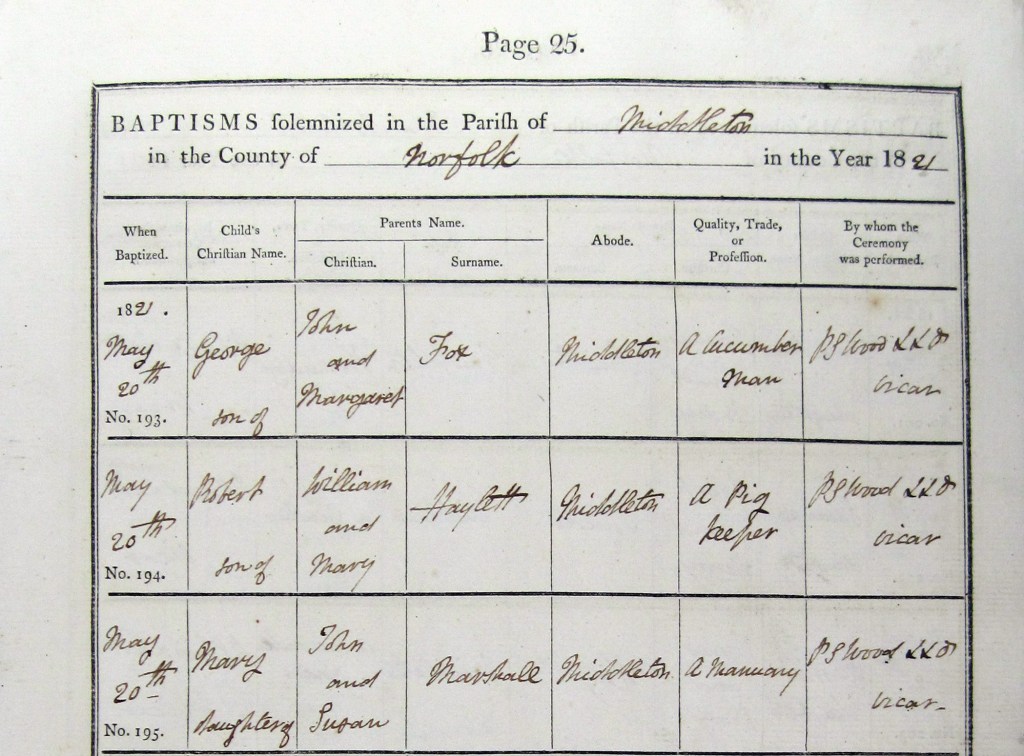 Page 25.
BAPTISMS solemnized in the Parish of Middleton
in the County of Norfolk in the Year 1821
When Baptized.
Child's Christian Name.
Parents Name.
Christian.
Surname.
Abode.
Quality, Trade, or Profession.
By whom the Ceremony was performed.
1821.
May
20th
No. 193.
George
son of
John
and
Margaret
Fox
Middleton
A Cucumber
Man
PS Wood LLD
vicar
May
20th
No. 194.
Robert
son of
William
and
Mary
Haylett
Middleton
A Pig
keeper
PS Wood LLD
vicar
May
20th
No. 195.
Mary
daughter of
John
and
Susan
Marshall
Middleton
A
PS Wood LLD
vicar